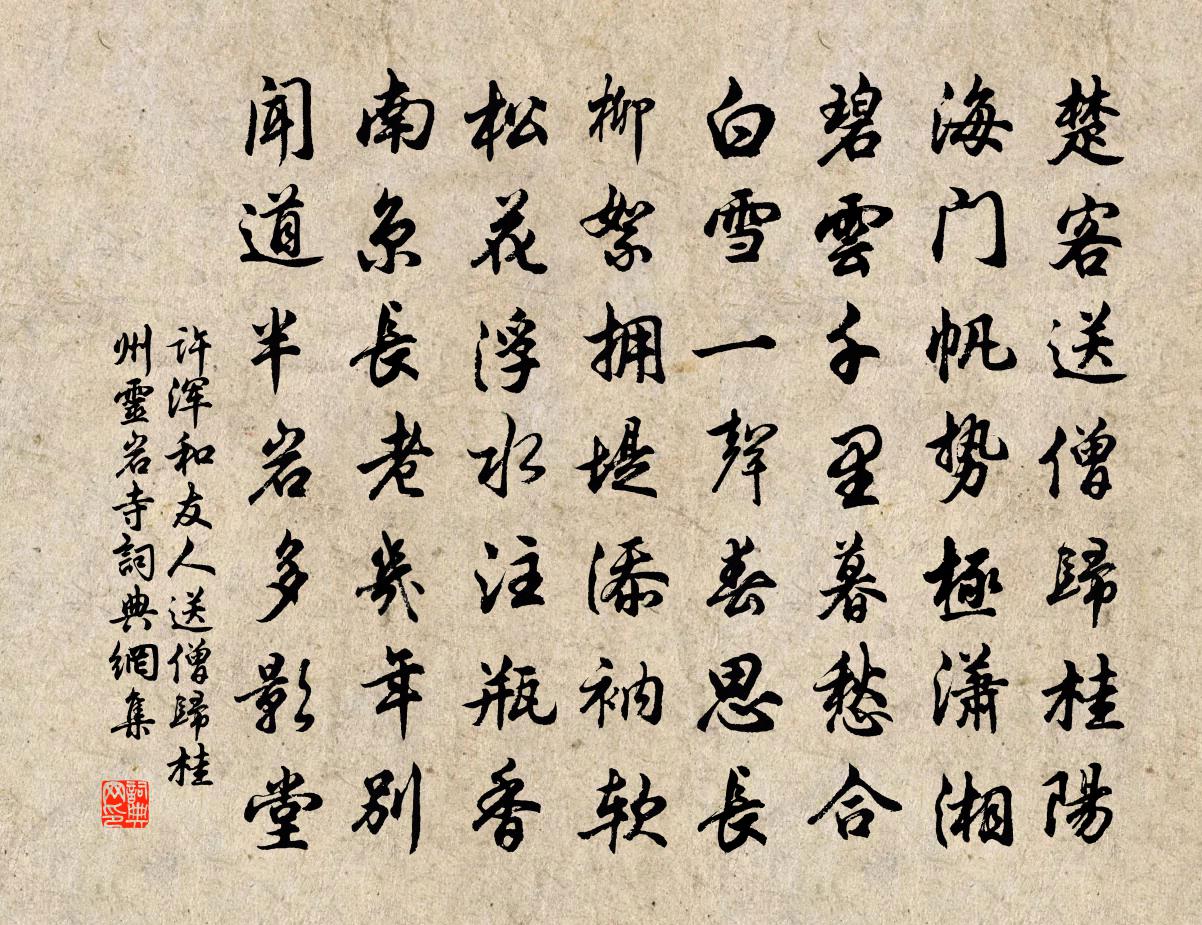 楚客送僧歸桂陽
海门帆势極瀟湘
碧雲千里暮愁合
白雪一聲春思長
柳絮拥堤添衲软
松花浮水注瓶香
南京長老幾年别
闻道半岩多影堂
许浑和友人送僧歸桂
州靈岩寺詞典網集
詞典
网印